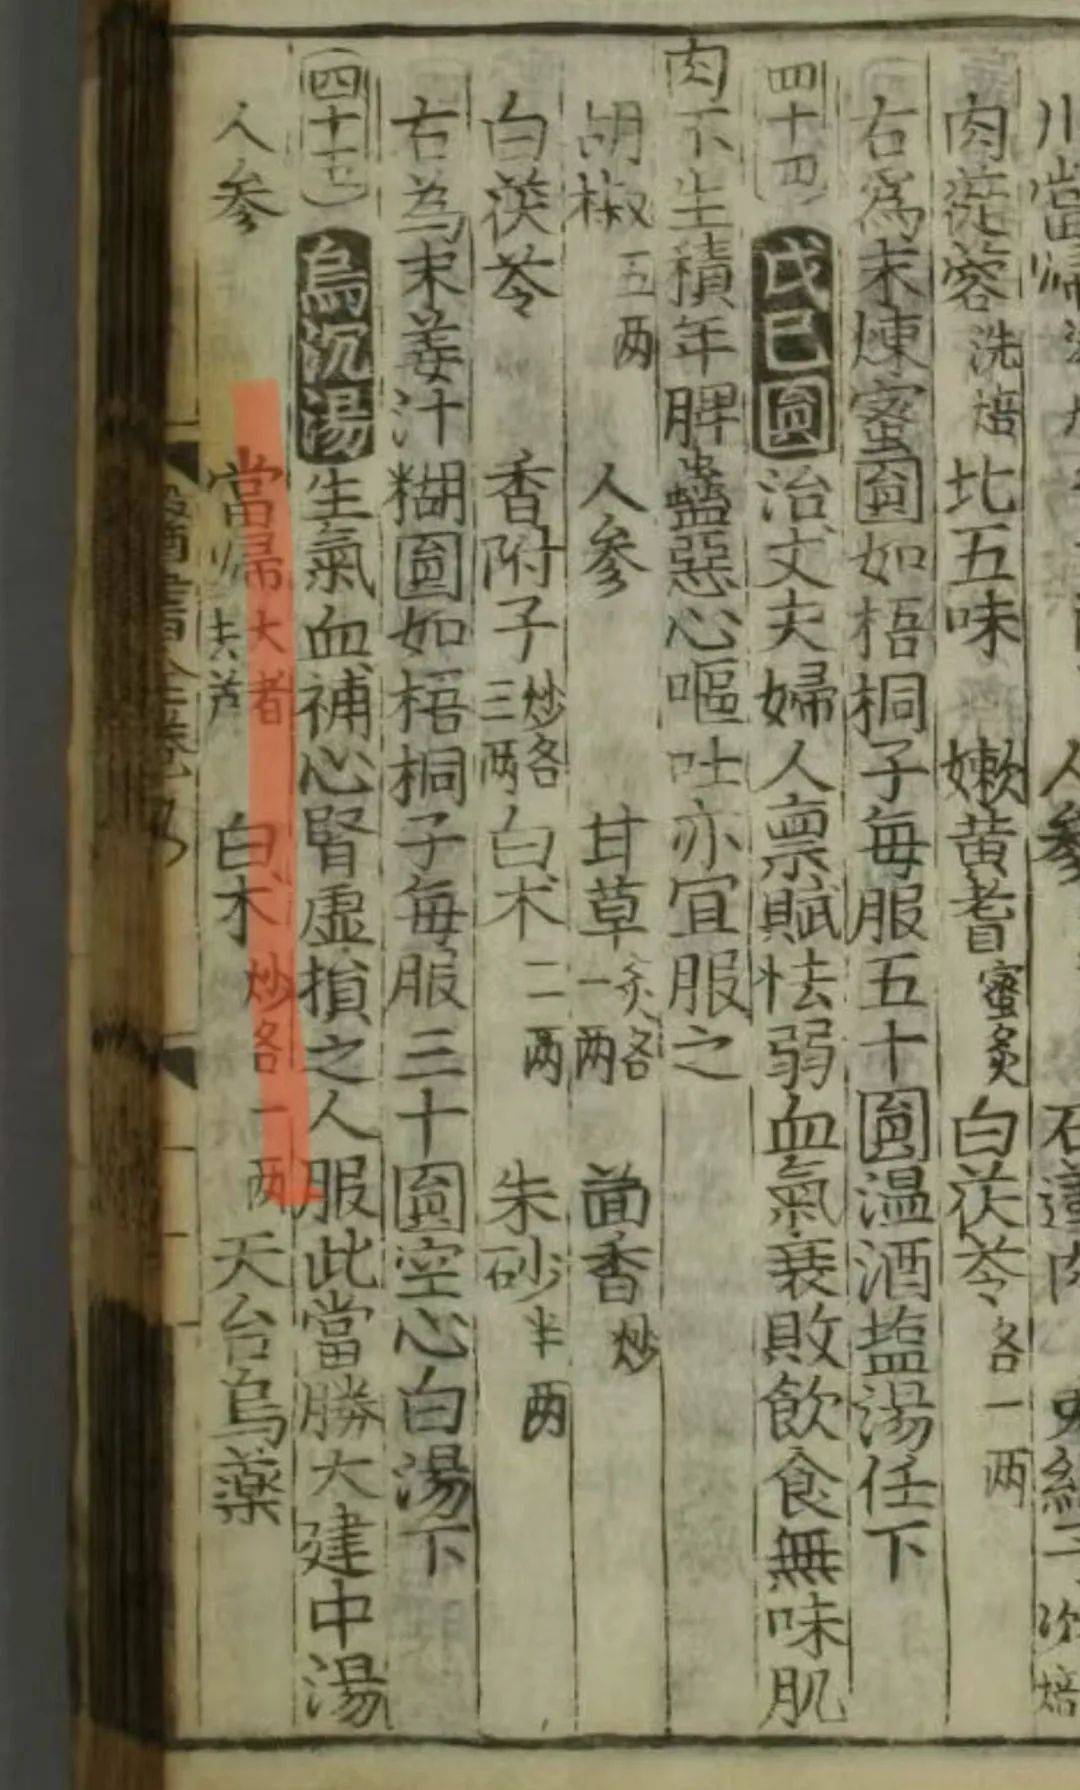 川當歸
人參
石蓮肉
肉蓯蓉洗焙 北五味 嫩黃耆蜜炙 白茯苓各一两
右爲末煉蜜圓如梧桐子每服五十圓温酒塩湯任下
四十四 戊巳圓 治丈夫婦人禀賦怯弱血氣衰敗飲食無味肌
肉不生積年脾蠱惡心嘔吐亦宜服之
胡椒五两 人參 甘草炙各一两 茴香炒
白茯苓 香附子炒各三两 白朮二两 朱砂半两
右為末姜汁糊圓如梧桐子每服三十圓空心白湯下
四十五 烏沉湯 生氣血補心腎虚損之人服此當勝大建中湯
人參 當歸大者去芦 白朮炒各一两 天台烏藥